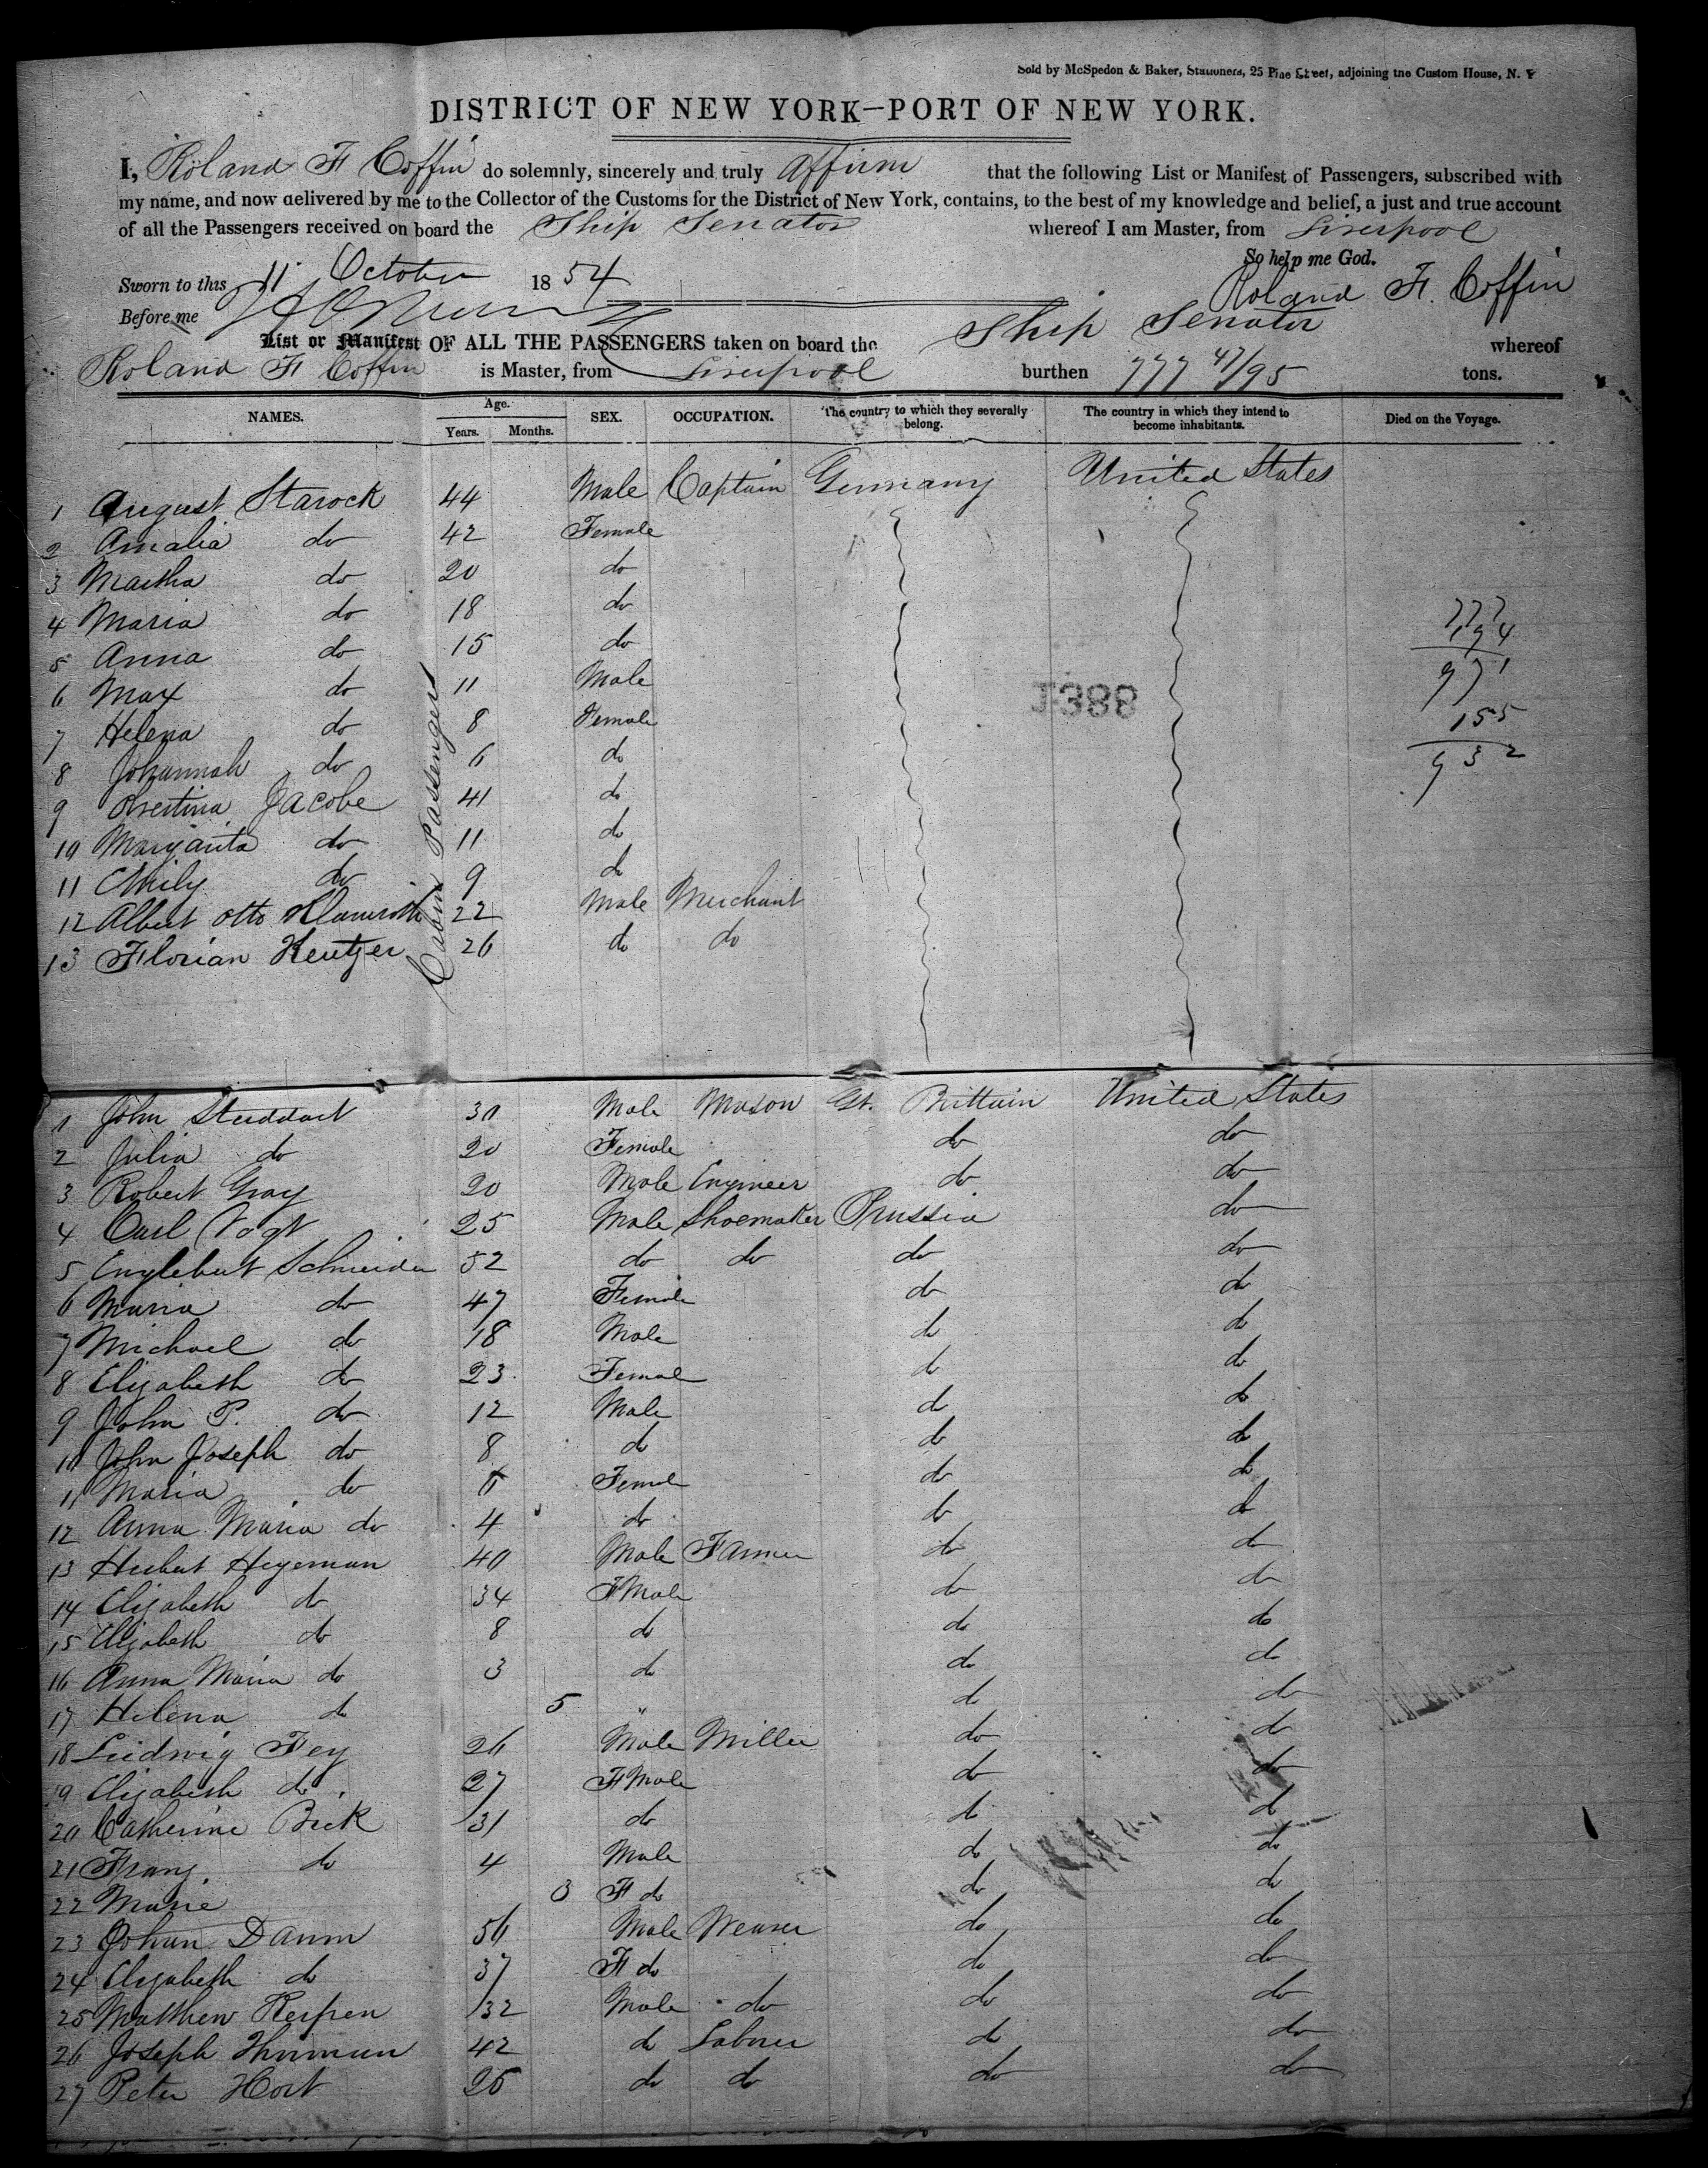 Sold by McSpedon & Baker, Stationers, 25 Pine Street, adjoining the Custom House, N. Y
DISTRICT OF NEW YORK—PORT OF NEW YORK.
I, Roland F Coffin do solemnly, sincerely and truly affirm that the following List or Manifest of Passengers, subscribed with
my name, and now delivered by me to the Collector of the Customs for the District of New York, contains, to the best of my knowledge and belief, a just and true account
of all the Passengers received on board the Ship Senator whereof I am Master, from Liverpool
So help me God.
Sworn to this 11 October 1854
Roland F. Coffin
Before me
List or Manifest OF ALL THE PASSENGERS taken on board the Ship Senator whereof
Roland F Coffin is Master, from Liverpool burthen 777 47/95 tons.
NAMES. Age. Years. Months. SEX. OCCUPATION. The country to which they severally belong. The country in which they intend to become inhabitants. Died on the Voyage.
Cabin Passengers
1 August Starock 44 Male Captain Germany United States
2 Amalia do 42 Female
3 Martha do 20 do
4 Maria do 18 do
5 Anna do 15 do
6 Max do 11 Male
7 Helena do 8 Female
8 Johannah do 6 do
9 Jacobe 41 do
10 Margarita do 11 do
11 Emily do 9 do
12 Albert Otto 22 Male Merchant
13 Florian Kentzer 26 do do
777
194
971
155
932
1388
1 John Studdart 30 Male Mason Gt. Brittain United States
2 Julia do 20 Female do do
3 Robert Gray 20 Male Engineer do do
4 Carl Vogt 25 Male Shoemaker Prussia do
5 Englebert Schneider 52 do do do do
6 Maria do 47 Female do do
7 Michael do 18 Male do do
8 Elizabeth do 23 Female do do
9 John P. do 12 Male do do
10 John Joseph do 8 do do do
11 Maria do Female do do
12 Anna Maria do 4 do do do
13 Hubert Hegeman 40 Male Farmer do do
14 Elizabeth do 34 FMale do do
15 Elizabeth do 8 do do do
16 Anna Maria do 3 do do do
17 Helena do 5 " do do
18 Ludwig Fey 26 Male Miller do do
19 Elizabeth do 27 FMale do do
20 Catherine Beck 31 do do do
21 Franz do 4 Male do do
22 Marie 3 F do do do
23 Johan Daum 56 Male Weaver do do
24 Elizabeth do 37 F do do do
25 Matthew Kerpen 32 Male do do do
26 Joseph 42 do Laborer do do
27 Peter Hort 26 do do do do